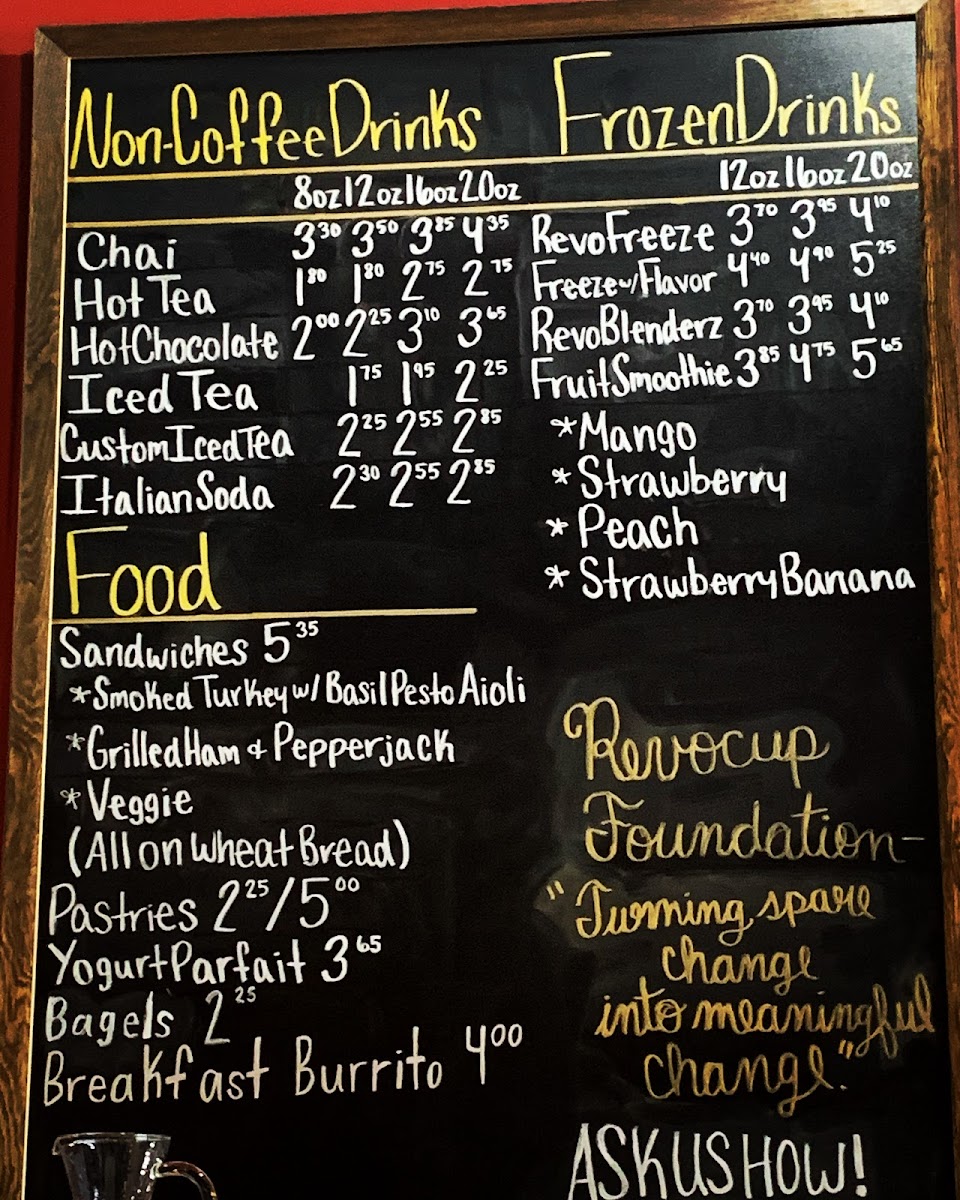 Non-Coffee Drinks
8oz 12oz 16oz 20oz
Chai 3.30 3.50 3.85 4.35
Hot Tea 1.80 1.80 2.75 2.75
Hot Chocolate 2.00 2.25 3.10 3.65
Iced Tea 1.75 1.95 2.25
Custom Iced Tea 2.25 2.55 2.85
Italian Soda 2.30 2.55 2.85
Food
Sandwiches 5.35
*Smoked Turkey w/ Basil Pesto Aioli
*Grilled Ham & Pepperjack
*Veggie
(All on Wheat Bread)
Pastries 2.25/5.00
Yogurt Parfait 3.65
Bagels 2.25
Breakfast Burrito 4.00
Frozen Drinks
12oz 16oz 20oz
RevoFreeze 3.70 3.95 4.10
Freeze w/ Flavor 4.40 4.90 5.25
RevoBlenderz 3.70 3.95 4.10
Fruit Smoothie 3.85 4.75 5.65
*Mango
*Strawberry
*Peach
*Strawberry Banana
Revocup
Foundation-
"Turning spare
change
into meaningful
change."
ASK US HOW!